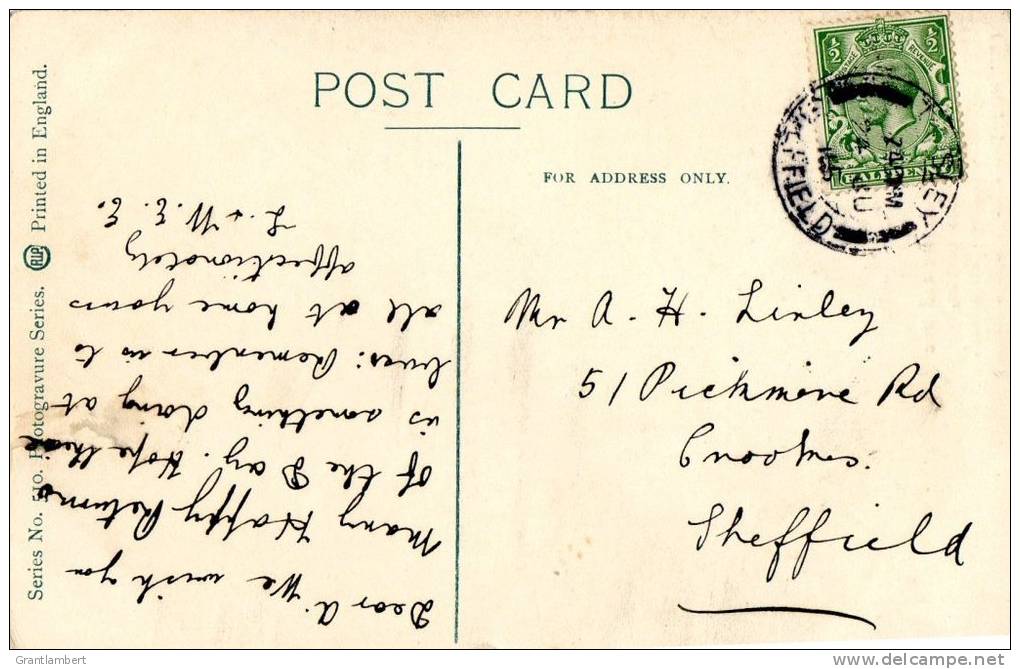 POST CARD
FOR ADDRESS ONLY.
½ POSTAGE REVENUE ½
HALFPENNY
SHEFFIELD
Mr A. H. Linley
51 Pickmere Rd
Crookes.
Sheffield
Dear A. We wish you
Many Happy Returns
of the Day. Hope there
is something doing at
Remember us to
all at home yours
affectionately
L. & W. E. E.
Series No. 510. Photogravure Series. RWP Printed in England.
Grantlambert
delcampe.net